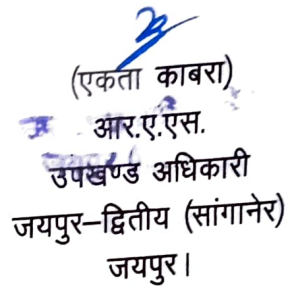 (एकता काबरा)
आर.ए.एस.
उपखण्ड अधिकारी
जयपुर–द्वितीय (सांगानेर)
जयपुर।